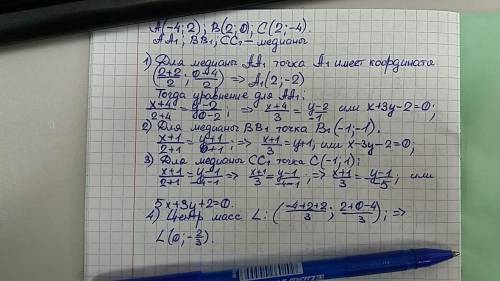 A(-4; 2); B(2; 0); C(2; -4).
AA₁; BB₁; CC₁ - медианы
1) Для медианы AA₁ точка A₁ имеет координаты
(2+2/2; 0-4/2) => A₁(2; -2)
Тогда уравнение для AA₁:
x+4/2+4 = y-2/0-2; => x+4/3 = y-2/-1 или x+3y-2=0;
2) Для медианы BB₁ точка B₁(-1; -1).
x+1/2+1 = y+1/0+1; => x+1/3 = y+1, или x-3y-2=0;
3) Для медианы CC₁ точка C(-1; 1):
x+1/2+1 = y-1/-4-1 => x+1/3 = y-1/-4-1; => x+1/3 = y-1/-5, или
5x+3y+2=0.
4) Центр масс L: (-4+2+2/3; 2+0-4/3); =>
L(0; -2/3).